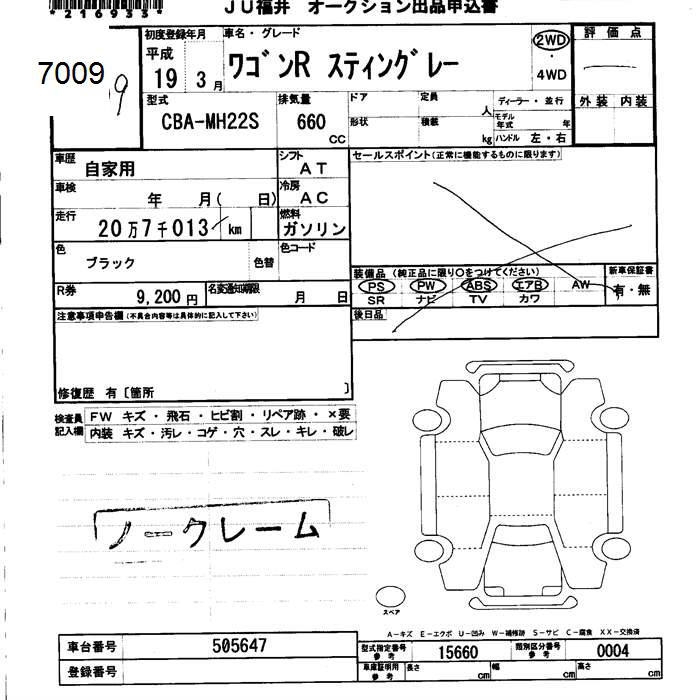 *216933*
JU福井 オークション出品申込書
7009
9
初度登録年月 車名・グレード
平成 19 3 月 ワゴンR スティングレー 2WD ・ 4WD
評価点
外装 内装
型式 CBA-MH22S 排気量 660 CC
ドア 定員 人
形状 積載 kg
ディーラー・並行
モデル年式 年
ハンドル 左・右
車歴 自家用 シフト AT
セールスポイント(正常に機能するものに限ります)
車検 年 月( 日) 冷房 AC
走行 20万7千013 km 燃料 ガソリン
色 ブラック 色替 色コード
装備品(純正品に限り○をつけてください) 新車保証書
PS PW ABS エアB AW 有・無
SR ナビ TV カワ
R券 9,200円 名変通知期限 月 日
後日品
注意事項申告欄(不具合内容等は具体的に記入して下さい)
修復歴 有〔箇所 〕
検査員記入欄
FW キズ・飛石・ヒビ割・リペア跡・×要
内装 キズ・汚レ・コゲ・穴・スレ・キレ・破レ
ノークレーム
スペア
A-キズ E-エクボ U-凹み W-補修跡 S-サビ C-腐食 XX-交換済
車台番号 505647
型式指定番号 参考 15660 類別区分番号 参考 0004
登録番号
車庫証明用 参考 長さ cm 幅 cm 高さ cm